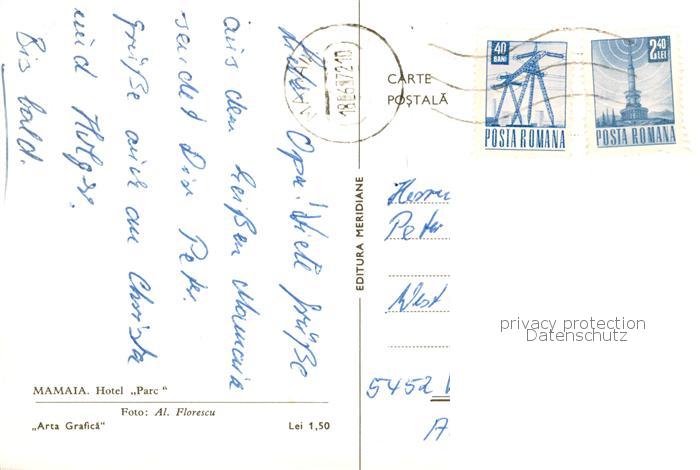 Lieber Opa! Viele Grüße
aus dem heißen Mamaia
sendet Dir Peter.
Grüße auch an Christa
und Holger.
Bis bald.
MAMAIA. Hotel „Parc“
Foto: Al. Florescu
„Arta Grafică“ Lei 1,50
EDITURA MERIDIANE
CARTE
POȘTALĂ
40
BANI
POSTA ROMANA
2,40
LEI
POSTA ROMANA
Herrn
Peter
West
5452
privacy protection
Datenschutz